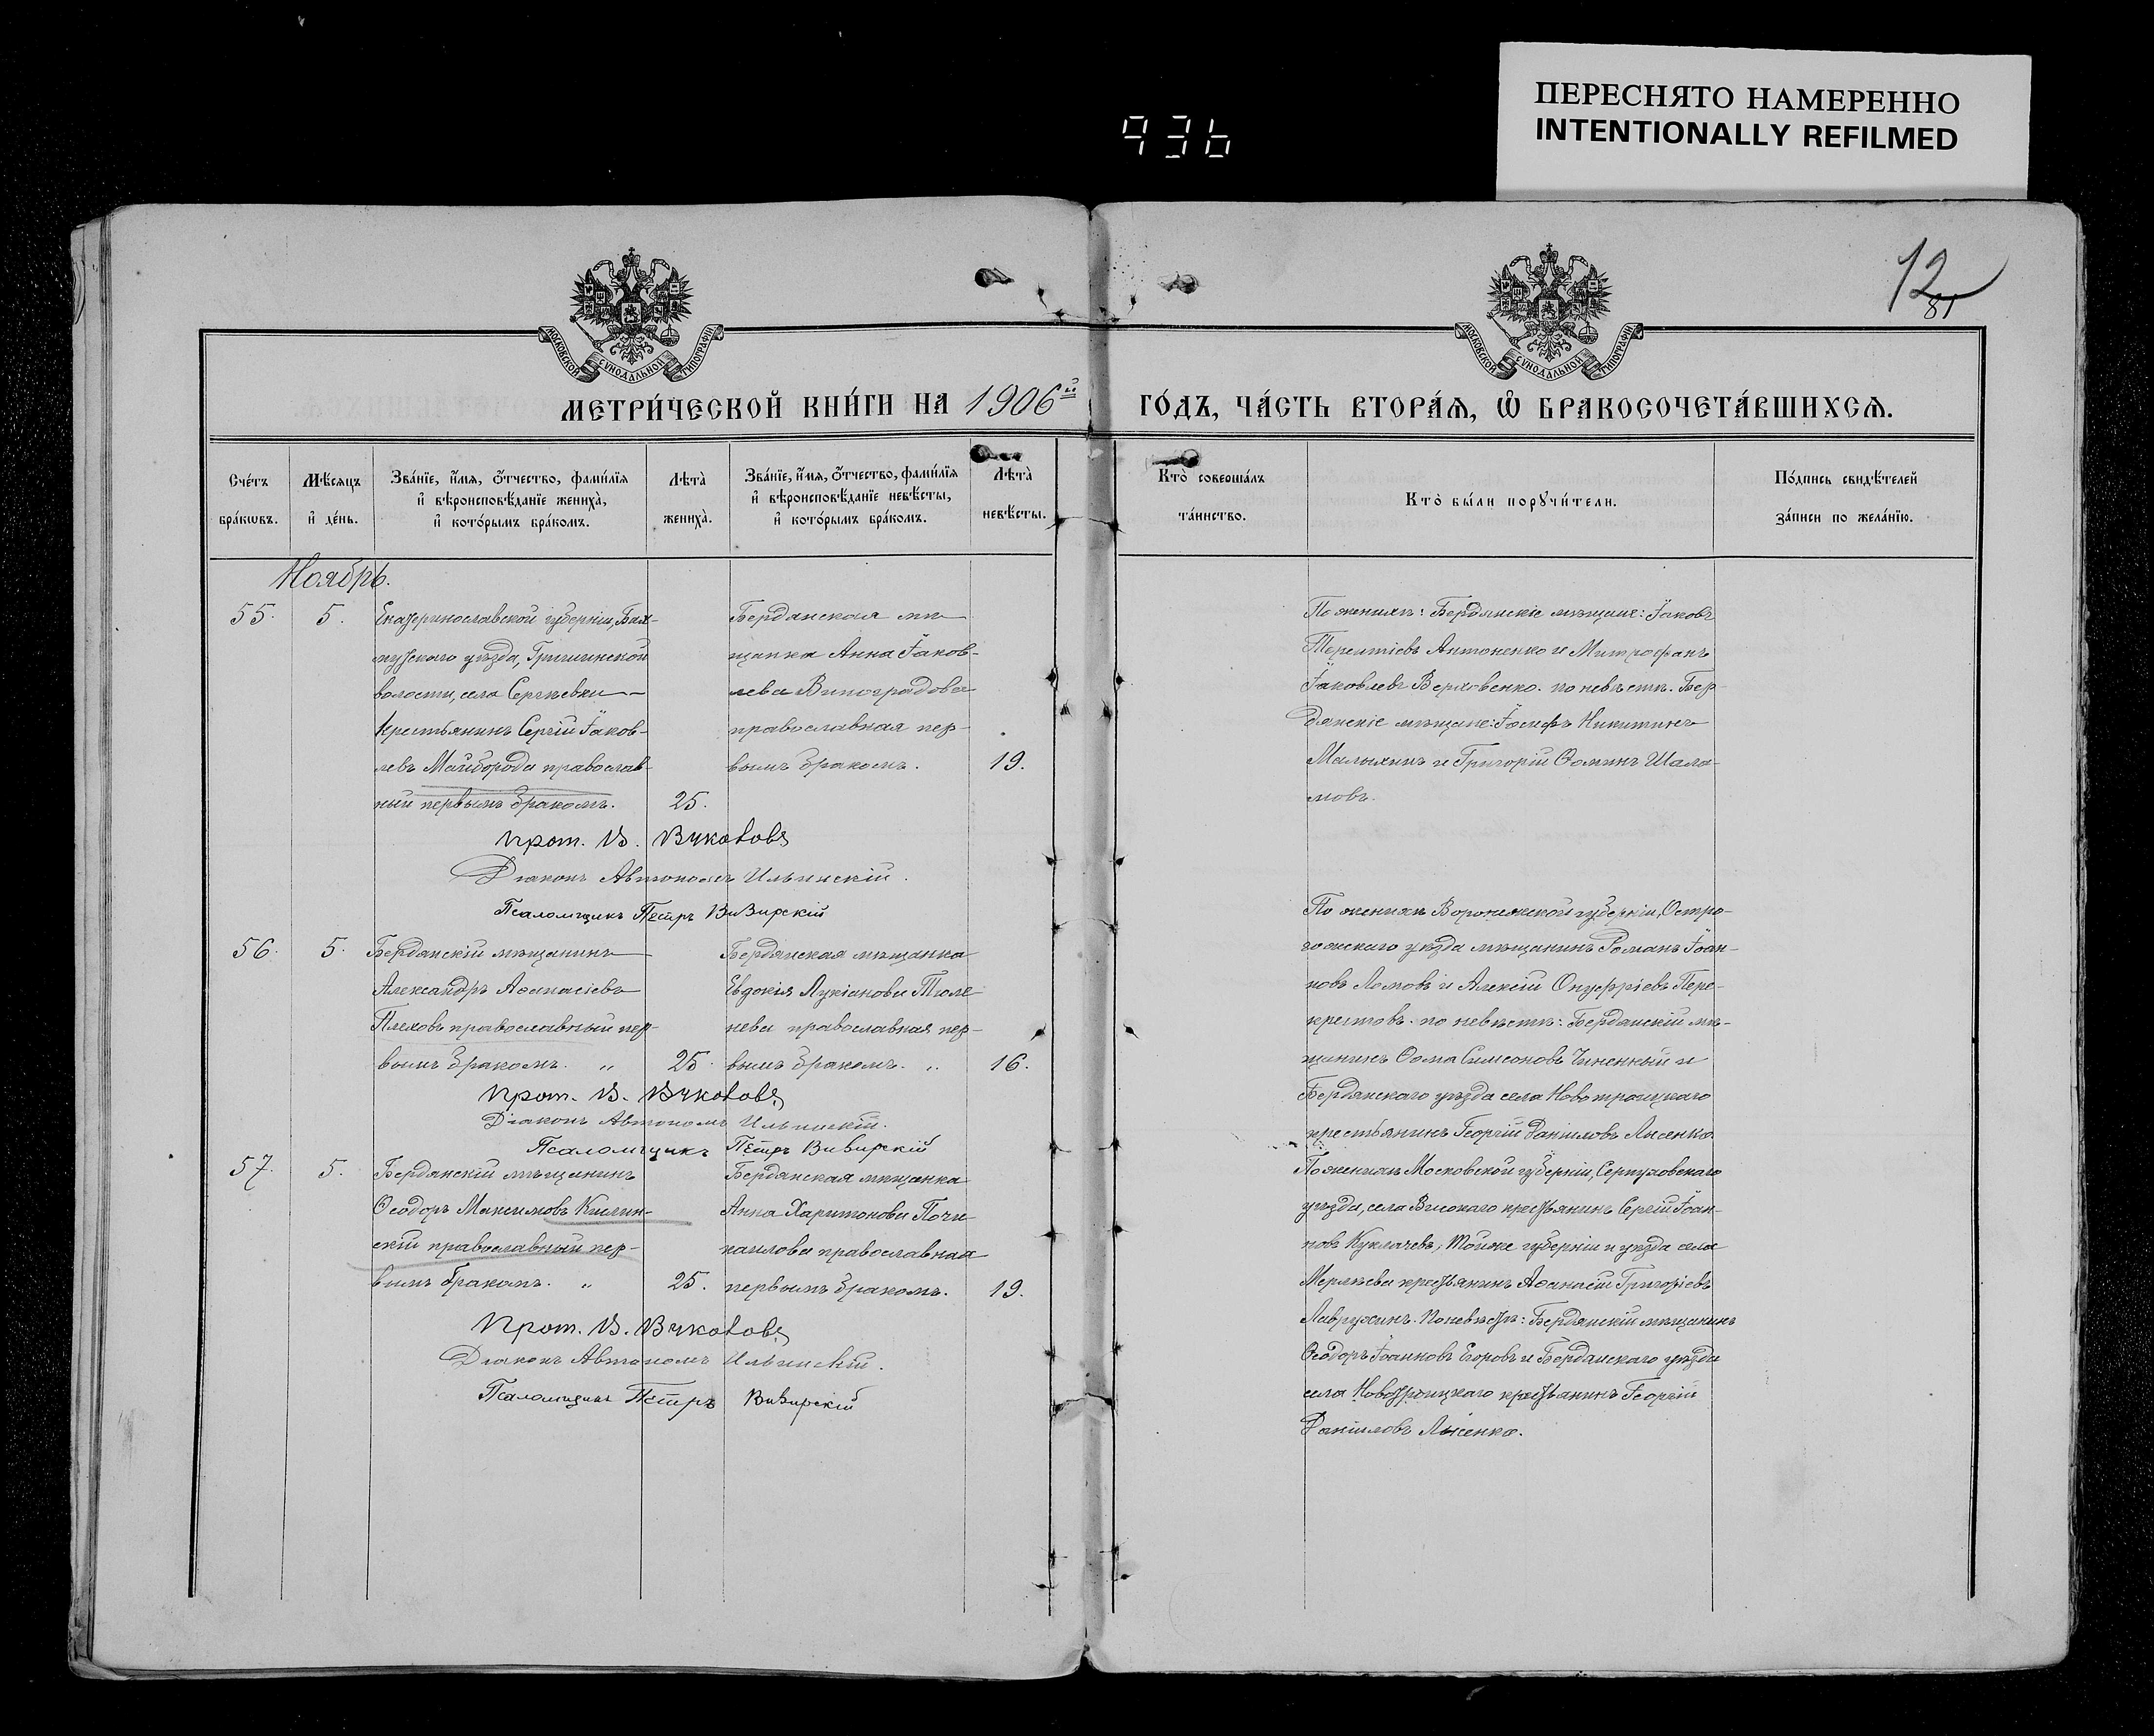 ПЕРЕСНЯТО НАМЕРЕННО
INTENTIONALLY REFILMED
936
12
81
МОСКОВСКОЙ СѴНОДАЛЬНОЙ ТИПОГРАФІИ
МОСКОВСКОЙ СѴНОДАЛЬНОЙ ТИПОГРАФІИ
МЕТРИ́ЧЕСКОЙ КНИ́ГИ НА 1906й ГО́ДЪ, ЧА́СТЬ ВТОРА́Ѧ, Ѽ БРАКОСОЧЕТА́ВШИХСѦ.
Сче́тъ бра́кѡвъ.
Мѣ́сяцъ и҆ де́нь.
Зва́нїе, и҆́мѧ, ѻ҆́тчество, фами́лїѧ
и҆ вѣроисповѣ́данїе жениха̀,
и҆ кото́рымъ бра́комъ.
Лѣта̀ жениха̀.
Зва́нїе, и҆́мѧ, ѻ҆́тчество, фами́лїѧ
и҆ вѣроисповѣ́данїе невѣ́сты,
и҆ кото́рымъ бра́комъ.
Лѣта̀ невѣ́сты.
Кто̀ соверша́лъ та́инство.
Кто̀ бы́ли порꙋчи́тели.
По́дпись свидѣ́телей за́писи по жела́нїю.
Ноябрь.
55. 5.
Екатеринославской губерніи, Бах-
мутскаго уѣзда, Гришинской
волости, села Сергѣевки
крестьянинъ Сергій Іаков-
левъ Майборода православ-
ный первымъ бракомъ. 25.
Бердянская мѣ-
щанка Анна Іаков-
лева Виноградова
православная пер-
вымъ бракомъ. 19.
По женихѣ: Бердянскіе мѣщане: Іаковъ
Терентіевъ Антоненко и Митрофанъ
Іаковлевъ Верховенко. по невѣстѣ. Бер-
дянскіе мѣщане: Іосифъ Никитинъ
Малыхинъ и Григорій Ѳоминъ Шала-
мовъ.
Прот. В. Вчкововъ
Діаконъ Автономъ Ильинскій.
Псаломщикъ Петръ Вивирскій
56. 5.
Бердянскій мѣщанинъ
Александръ Аѳанасіевъ
Плеховъ православный пер-
вымъ бракомъ. „ 25.
Бердянская мѣщанка
Евдокія Лукіанова Тюле-
нева православная пер-
вымъ бракомъ. „ 16.
По женихѣ Воронежской губерніи, Остро-
гожскаго уѣзда мѣщанинъ Романъ Іоан-
новъ Ломовъ и Алексій Онуфріевъ Пере-
крестовъ. по невѣстѣ: Бердянскій мѣ-
щанинъ Ѳома Симеоновъ Чиненный и
Бердянскаго уѣзда села Новотроицкаго
крестьянинъ Георгій Даніиловъ Лысенко.
Прот. В. Вчкововъ
Діаконъ Автономъ Ильинскій.
Псаломщикъ Петръ Вивирскій
57. 5.
Бердянскій мѣщанинъ
Ѳеодоръ Максимовъ Килин-
скій православный пер-
вымъ бракомъ. „ 25.
Бердянская мѣщанка
Анна Харитонова Почи-
наилова православная
первымъ бракомъ. 19.
По женихѣ Московской губерніи, Серпуховскаго
уѣзда, села Высокаго крестьянинъ Сергій Іоан-
новъ Куклачевъ; Тойже губерніи и уѣзда села
крестьянинъ Аѳанасій Григоріевъ
Лаврухинъ. По невѣстѣ: Бердянскій мѣщанинъ
Ѳеодоръ Іоанновъ Егоровъ и Бердянскаго уѣзда
села Новотроицкаго крестьянинъ Георгій
Даніиловъ Лысенко.
Прот. В. Вчкововъ
Діаконъ Автономъ Ильинскій.
Псаломщикъ Петръ Вивирскій